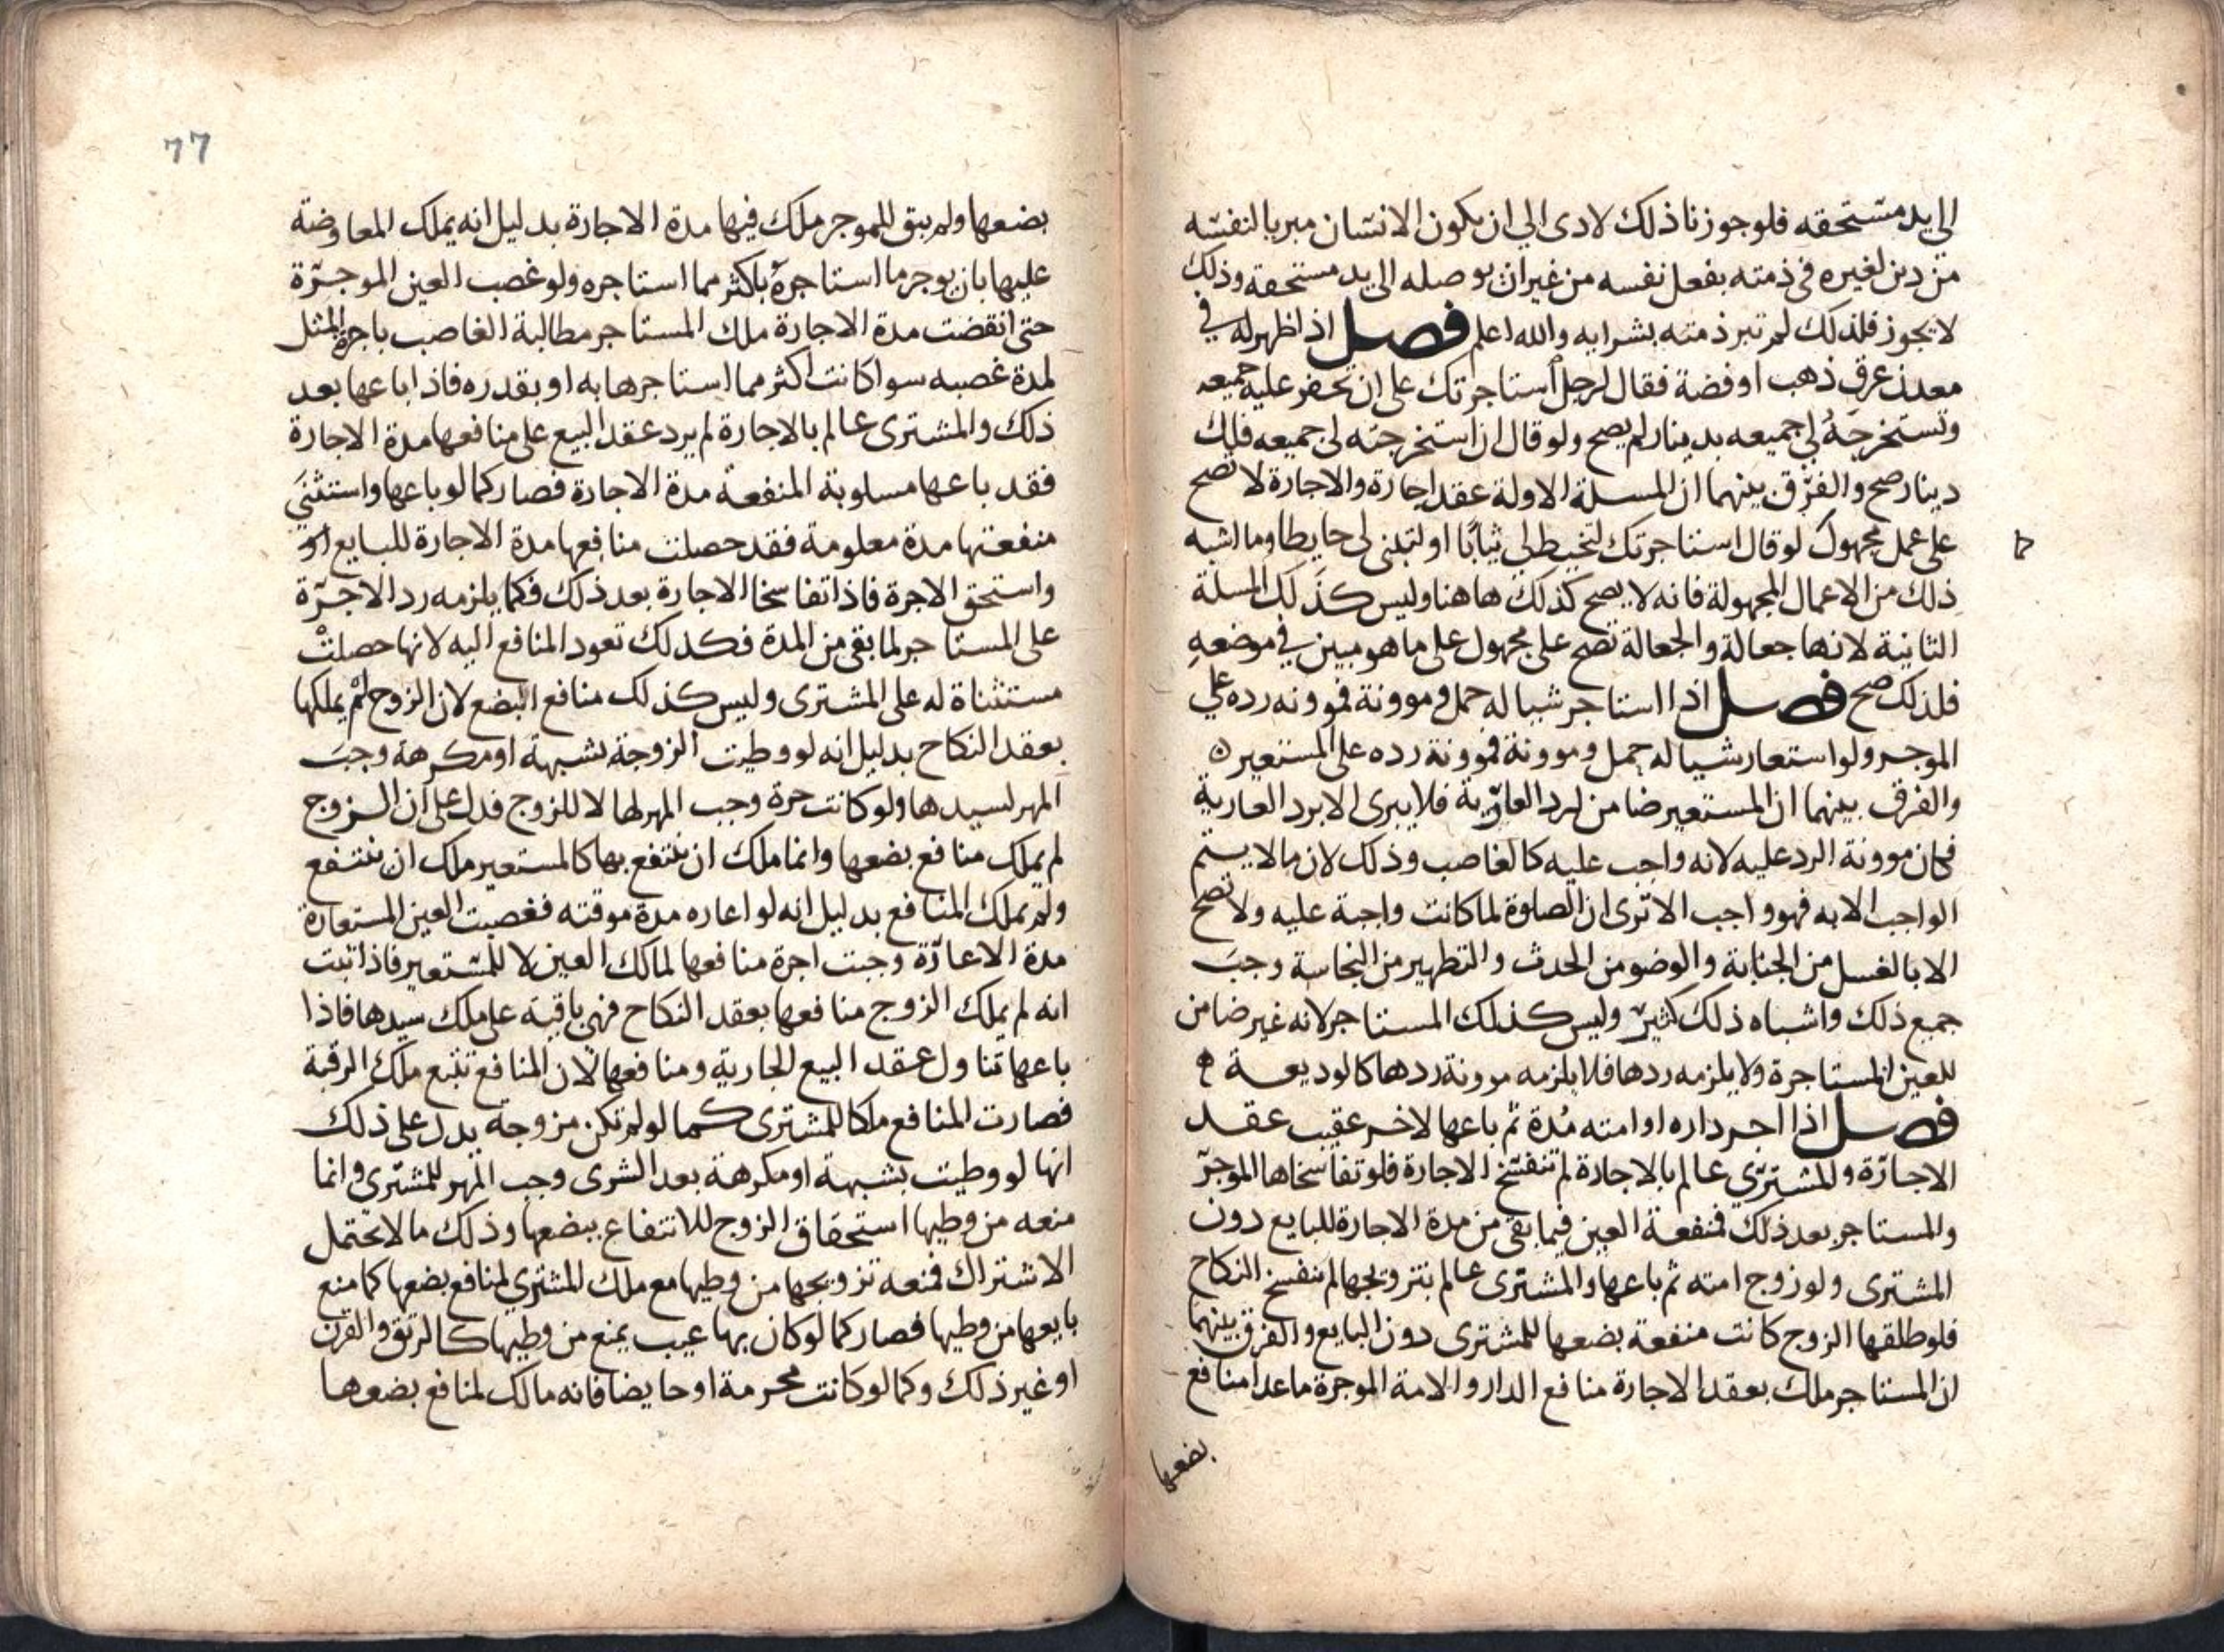 الى يد مستحقه فلو جوزنا ذلك لادى الى ان يكون الانسان مبريا لنفسه
من دين لغيره فى ذمته بفعل نفسه من غير ان يوصله الى يد مستحقه وذلك
لا يجوز فلذلك لم تبر ذمته بشرايه والله اعلم فصل اذا ظهر له في
معدن عرق ذهب او فضة فقال لرجل استاجرتك على ان تحفر عليه جميعه
وتستخرجه لي جميعه بدينار لم يصح ولو قال ان استخرجته لى جميعه فلك
دينار صح والفرق بينهما ان المسلة الاولة عقد اجارة والاجارة لا تصح
على عمل مجهول كما لو قال استاجرتك لتخيط لى ثيابًا او لتبنى لى حايطا وما اشبه
ذلك من الاعمال المجهولة فانه لا يصح كذلك هاهنا وليس كذلك المسلة
الثانية لانها جعالة والجعالة تصح على مجهول على ما هو مبين في موضعه
فلذلك صح فصل اذا استاجر شيا له حمل وموونة فموونه رده على
الموجر ولو استعار شيا له حمل وموونة فموونة رده على المستعير
والفرق بينهما ان المستعير ضامن لرد العارية فلا يبرى الا برد العارية
فكان موونة الرد عليه لانه واجب عليه كالغاصب وذلك لان ما لا يستم
الواجب الا به فهو واجب الا ترى ان الصلوة لما كانت واجبة عليه ولا تصح
الا بالغسل من الجنابة والوضو من الحدث والتطهير من النجاسة وجب
جميع ذلك واشباه ذلك كثير وليس كذلك المستاجر لانه غير ضامن
للعين المستاجرة ولا يلزمه ردها فلا يلزمه موونة ردها كالوديعة ه
فصل اذا اجر داره او امته مُدة ثم باعها لاخر عقيب عقد
الاجارة والمشترى عالم بالاجارة لم تنفسخ الاجارة فلو تفاسخاها الموجر
والمستاجر بعد ذلك فمنفعة العين فيما بقى من مدة الاجارة للبايع دون
المشترى ولو زوج امته ثم باعها والمشترى عالم بتزويجها لم ينفسخ النكاح
فلو طلقها الزوج كانت منفعة بضعها للمشترى دون البايع والفرق بينهما
ان المستاجر ملك بعقد الاجارة منافع الدار والامة الموجرة ما عدا منافع
بضعها
77
بضعها ولم يبق للموجر ملك فيها مدة الاجارة بدليل انه يملك المعاوضة
عليها بان يوجر ما استاجره باكثر مما استاجره ولو غصب العين الموجرة
حتى انقضت مدة الاجارة ملك المستاجر مطالبة الغاصب باجرة المثل
لمدة غصبه سوا كانت اكثر مما استاجرها به او بقدره فاذا باعها بعد
ذلك والمشترى عالم بالاجارة لم يرد عقد البيع على منافعها مدة الاجارة
فقد باعها مسلوبة المنفعة مدة الاجارة فصار كما لو باعها واستثنى
منفعتها مدة معلومة فقد حصلت منافعها مدة الاجارة للبايع
واستحق الاجرة فاذا تفاسخا الاجارة بعد ذلك فكما يلزمه رد الاجرة
على المستاجر لما بقى من المدة فكذلك تعود المنافع اليه لانها حصلت
مستثناة له على المشترى وليس كذلك منافع البضع لان الزوج لم يملكها
بعقد النكاح بدليل انه لو وطيت الزوجة بشبهة او مكرهة وجب
المهر لسيدها ولو كانت حرة وجب المهر لها لا للزوج فدل على ان الزوج
لم يملك منافع بضعها وانما ملك ان ينتفع بها كالمستعير ملك ان ينتفع
ولم يملك المنافع بدليل انه لو اعاره مدة موقته فغصبت العين المستعارة
مدة الاعارة وجبت اجرة منافعها لمالك العين لا للمستعير فاذا ثبت
انه لم يملك الزوج منافعها بعقد النكاح فهى باقية على ملك سيدها فاذا
باعها تناول عقد البيع الجارية ومنافعها لان المنافع تتبع ملك الرقبة
فصارت المنافع ملكا للمشترى كما لو لم تكن مزوجة يدل على ذلك
انها لو وطيت بشبهة او مكرهة بعد الشرى وجب المهر للمشترى وانما
منعه من وطيها استحقاق الزوج للانتفاع ببضعها وذلك ما لا يحتمل
الاشتراك فمنعه تزويجها من وطيها مع ملك المشتري لمنافع بضعها كما منع
بايعها من وطيها فصار كما لو كان بها عيب يمنع من وطيها كالرتق والقرن
او غير ذلك وكما لو كانت محرمة او حايضا فانه مالك لمنافع بضعها